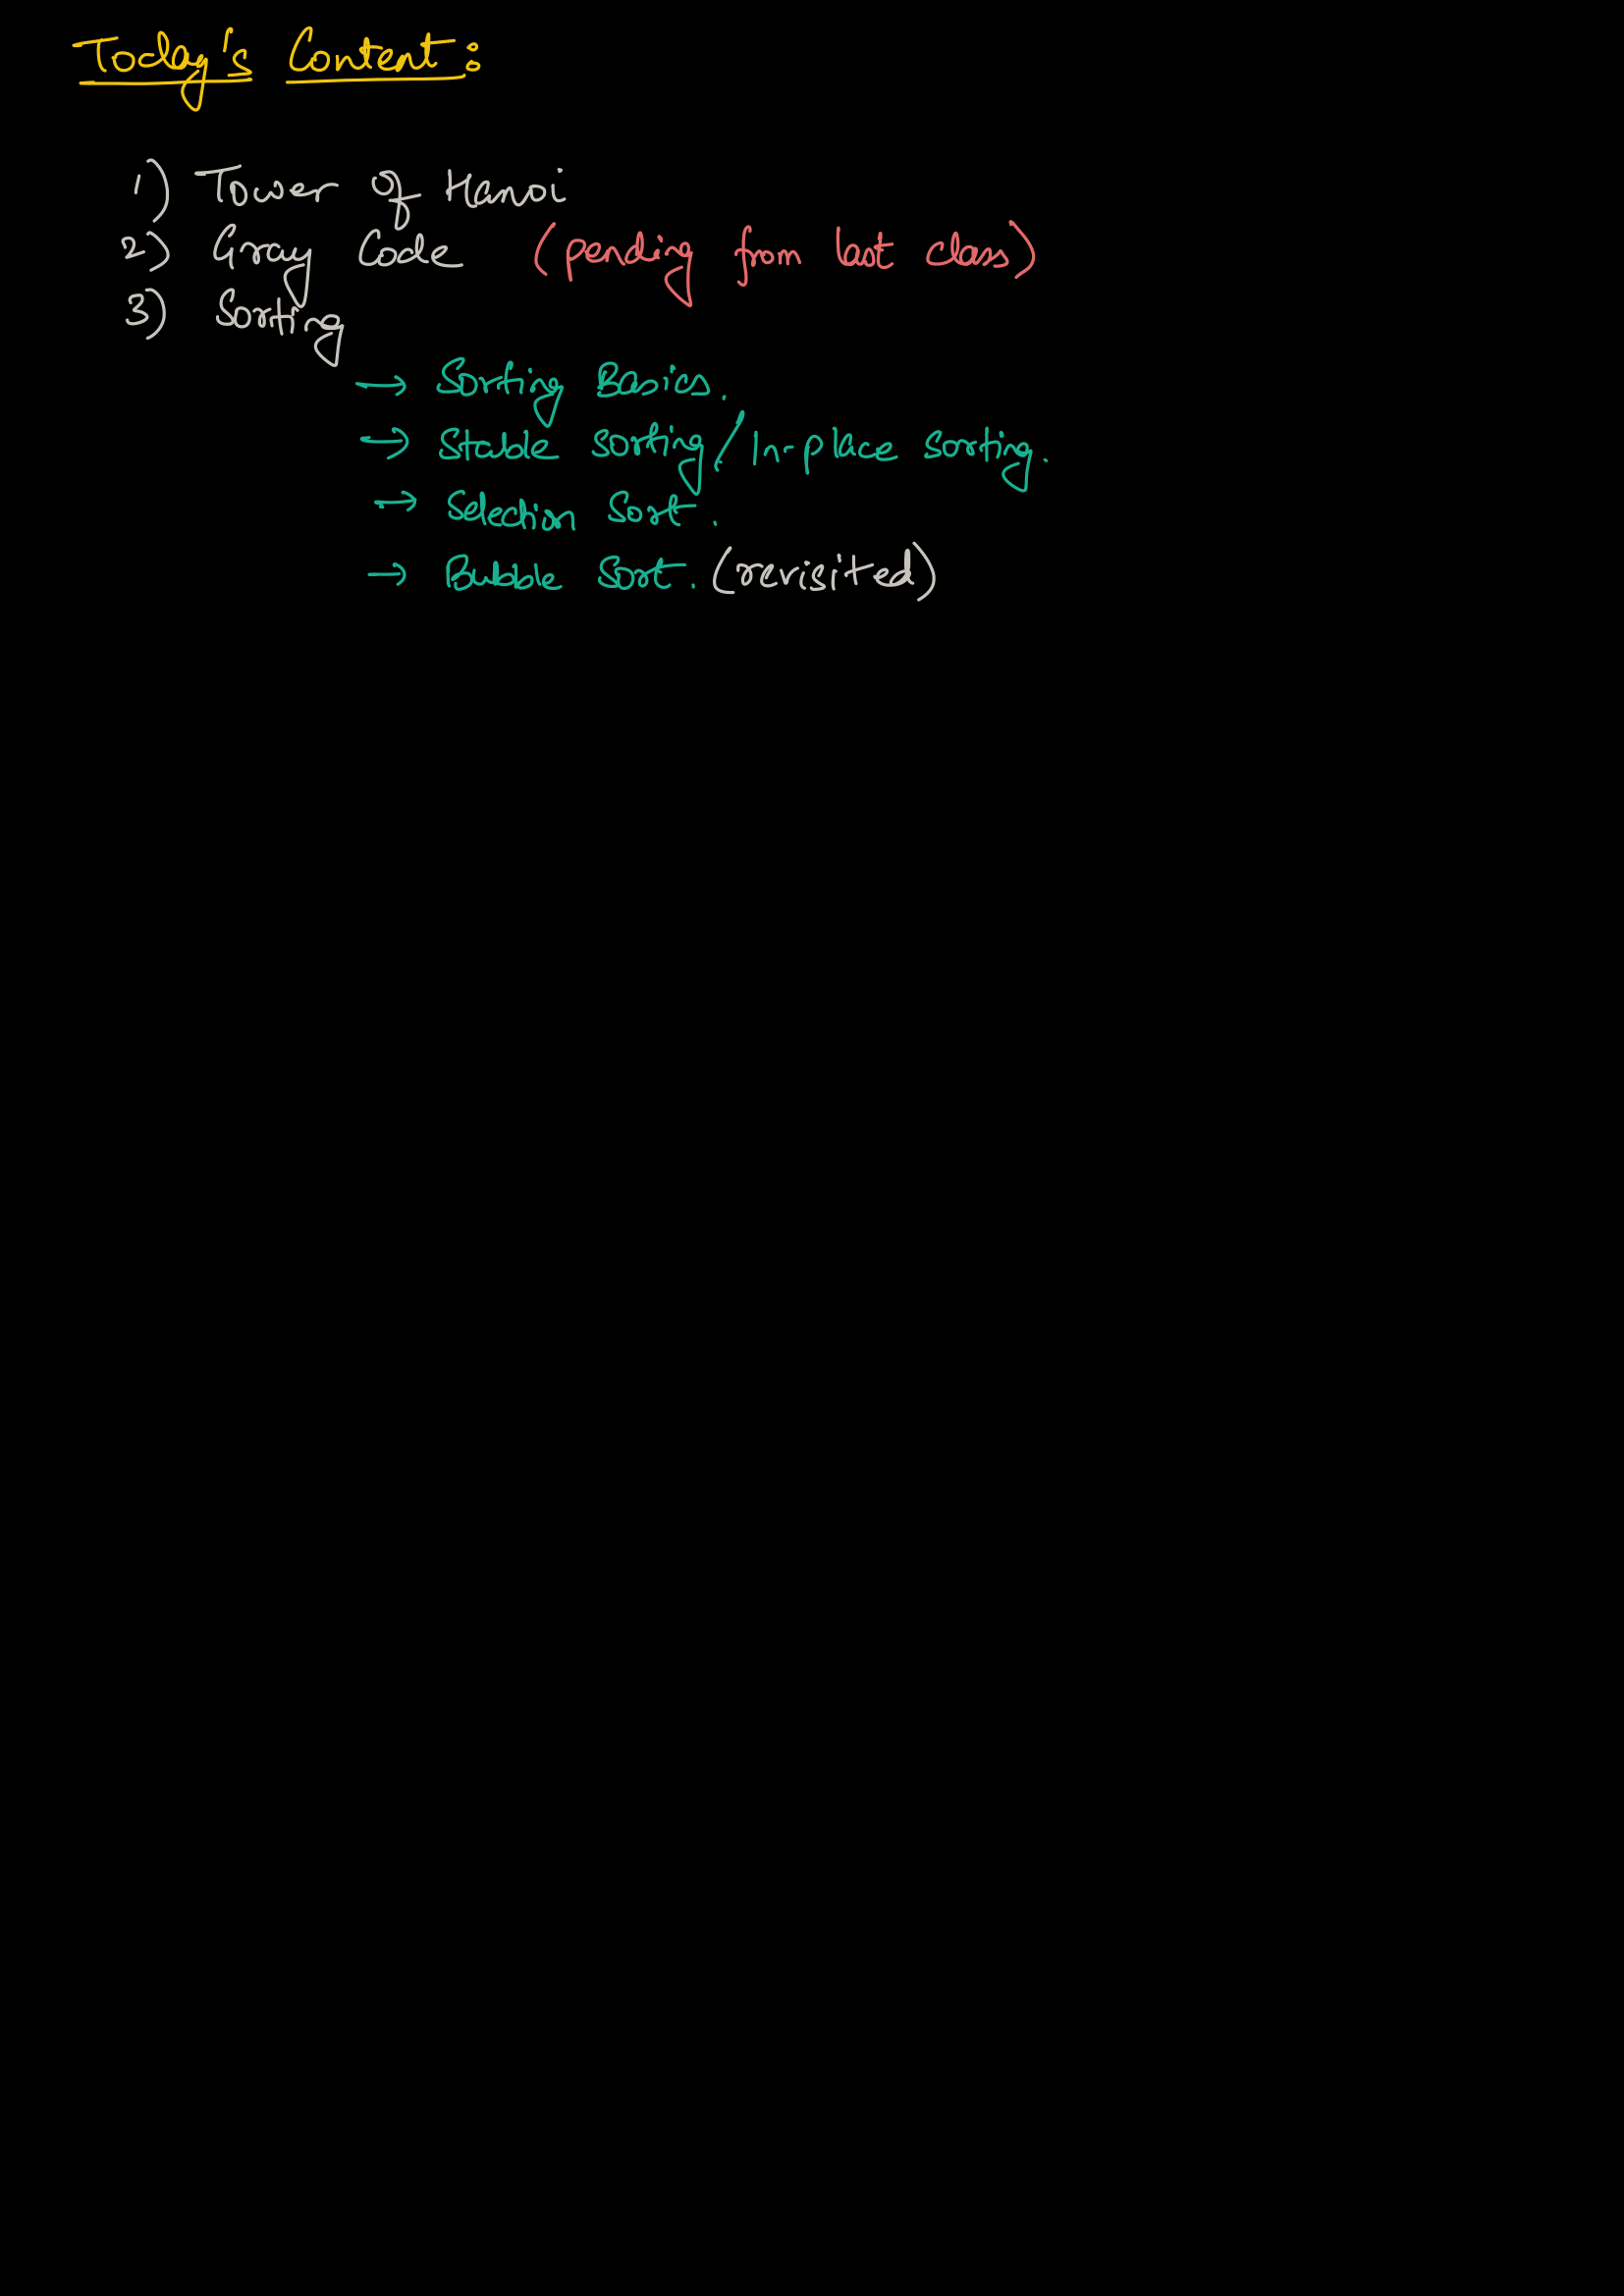 Today's Content:
1) Tower of Hanoi
2) Gray Code (pending from last class)
3) Sorting
→ Sorting Basics.
→ Stable sorting / In-place sorting.
→ Selection Sort.
→ Bubble Sort. (revisited)